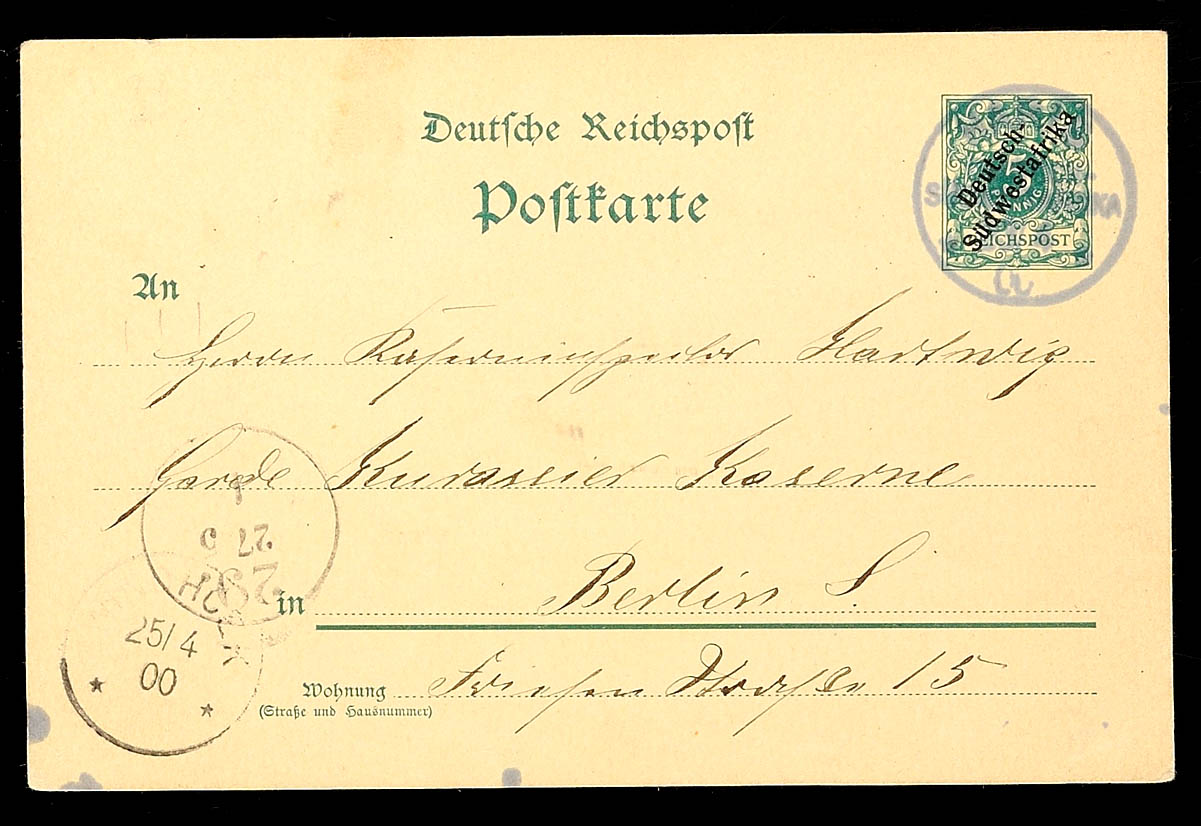 Deutsche Reichspost
Postkarte
5
PFENNIG
REICHSPOST
Deutsch-
Südwestafrika
An
Herrn Kaserneninspektor Hartwig
Garde Kürassier Kaserne
in Berlin S.
Wohnung Friesen Strasse 15
(Straße und Hausnummer)
27 5
25/4
00